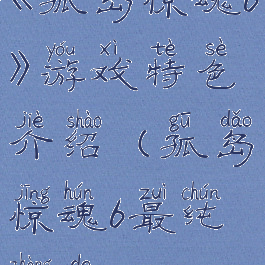 《孤岛惊魂6
yóu xì tè sè
》游戏特色
jiè shào gū dǎo
介绍（孤岛
jīng hún zuì chún
惊魂6-最纯